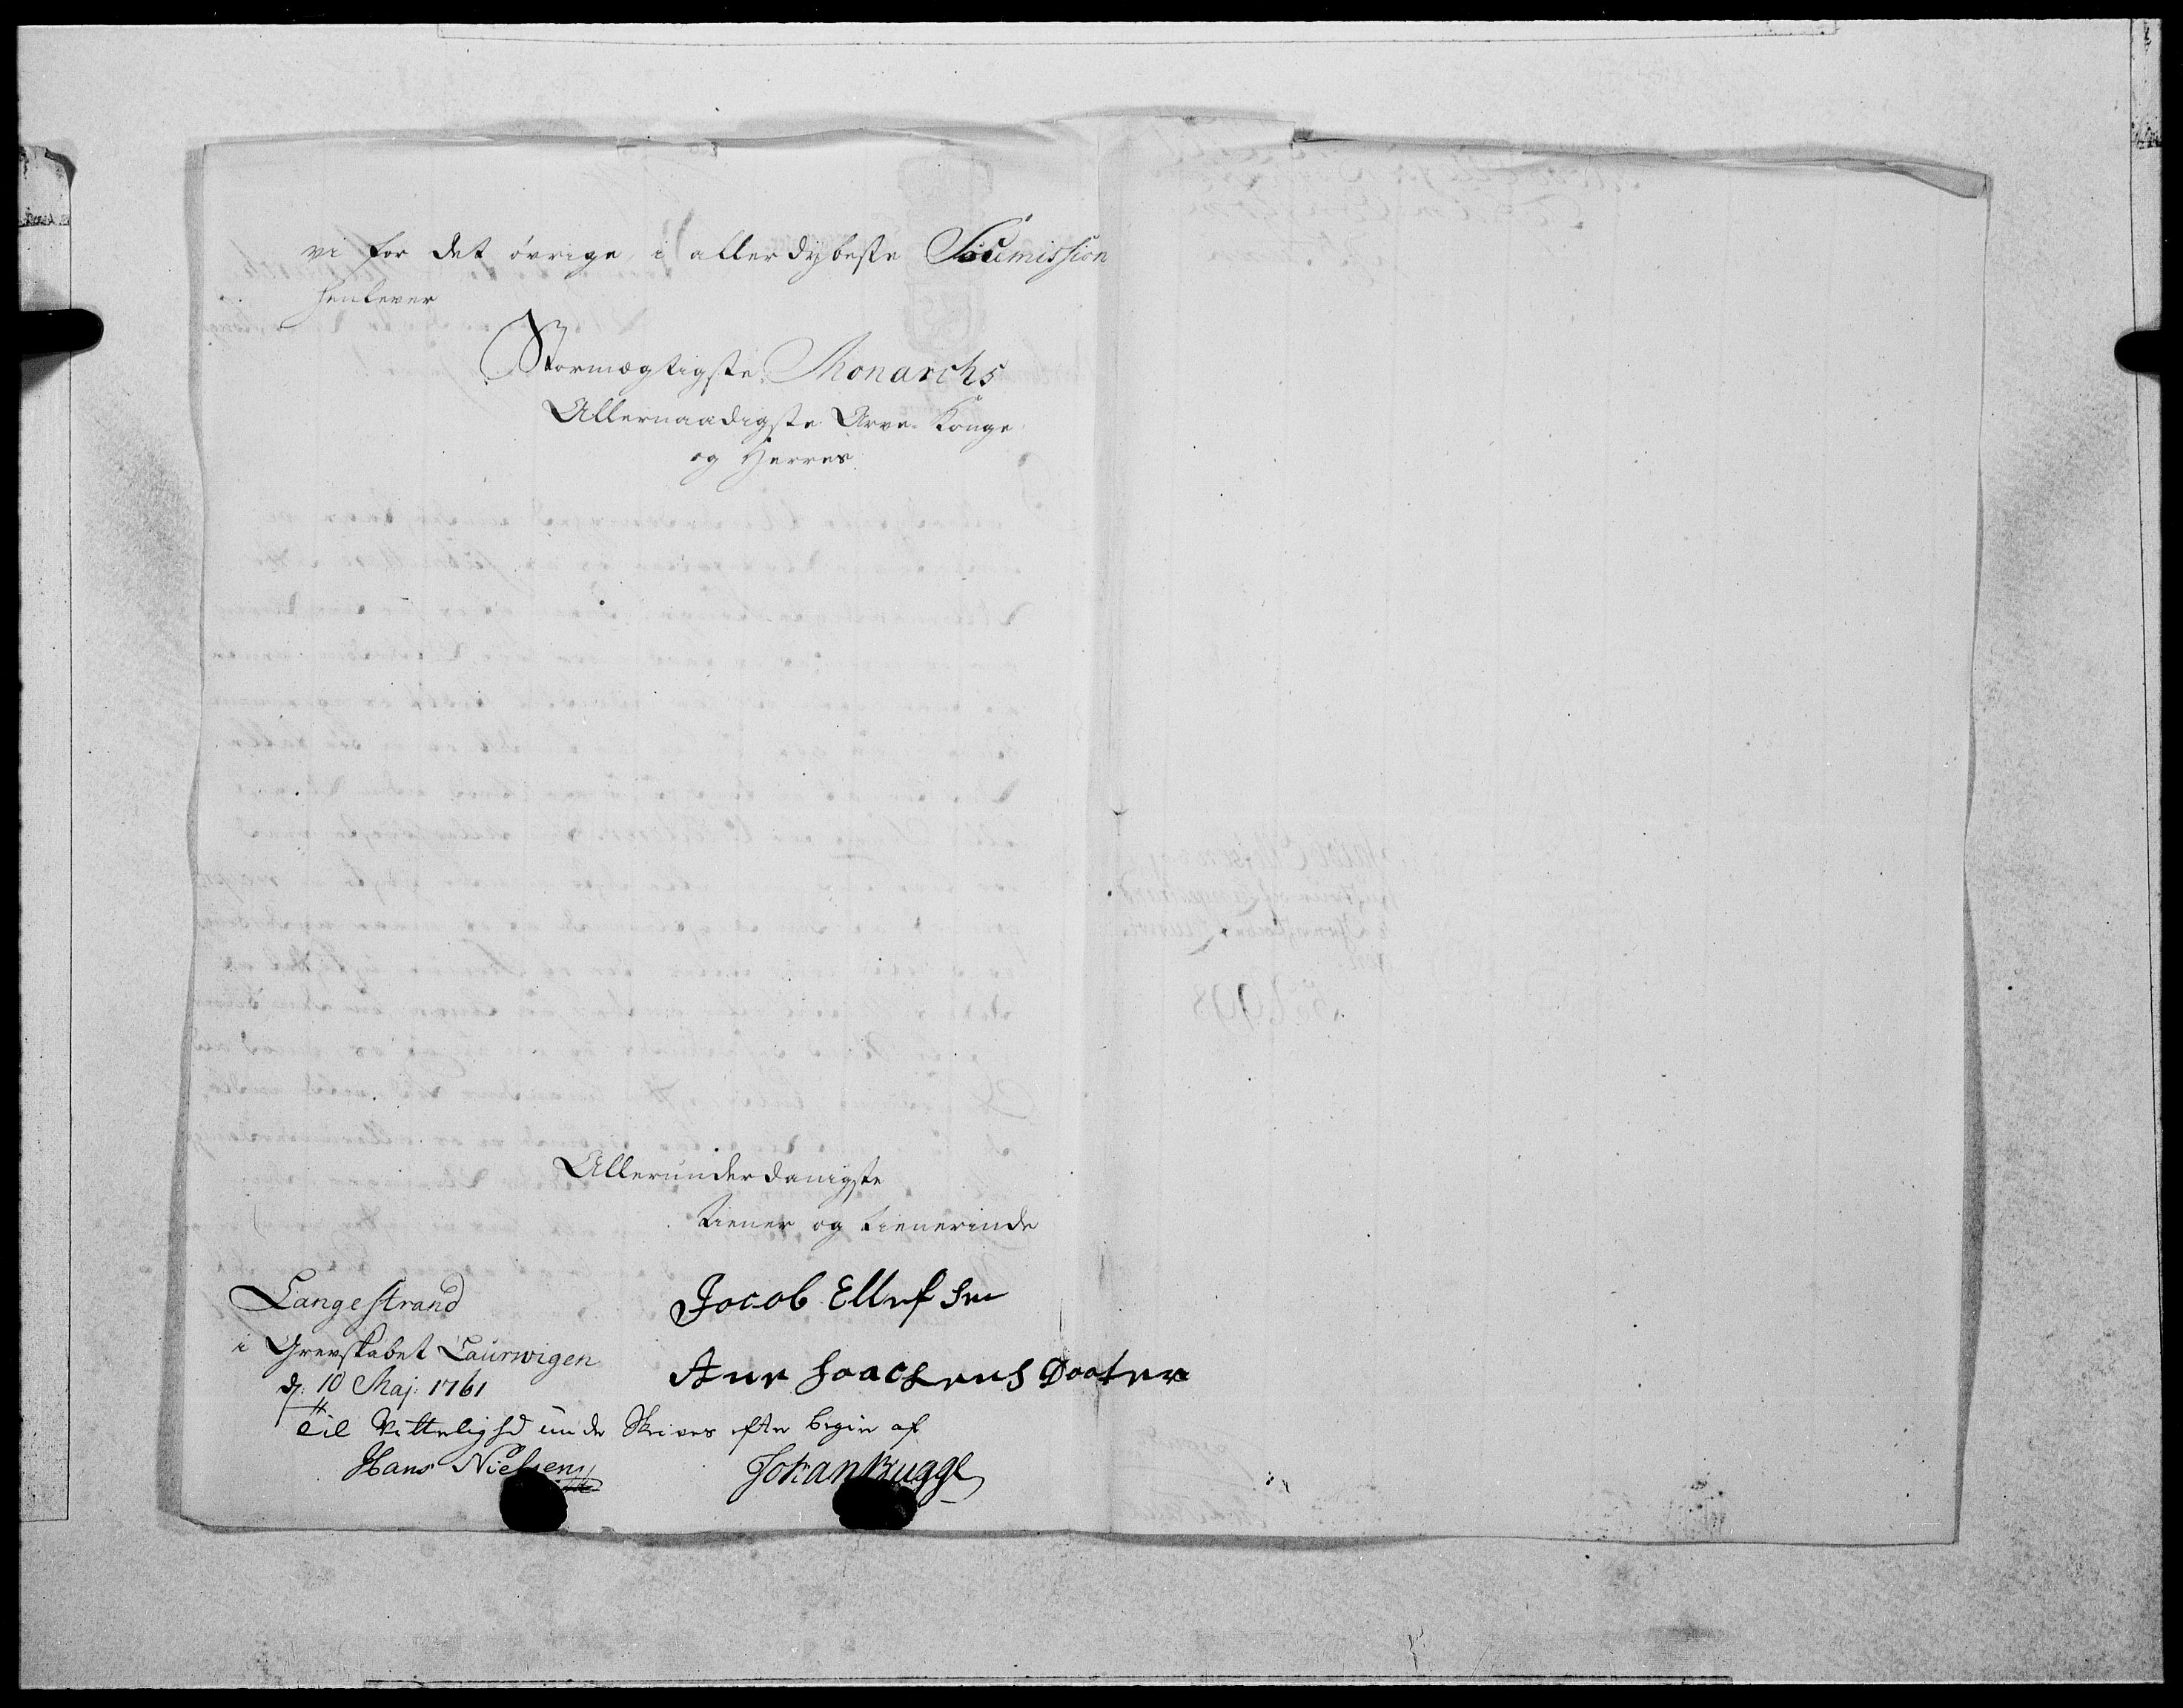 vi for det övrige i allerdybeste Soumission
henlever
Stormægtigste Monarchs
Allernaadigste Arve-Konge
og Herres
Allerunderdanigste
tiener og tienerinde
Langestrand
i Grevskabet Laurwigen
d: 10 Maj: 1761
Jocob Ellefsen
Ane Isachens Daater
Til Vitterlighd under Skrives efter begiær af
Hans Nielsen
Johan Bugge